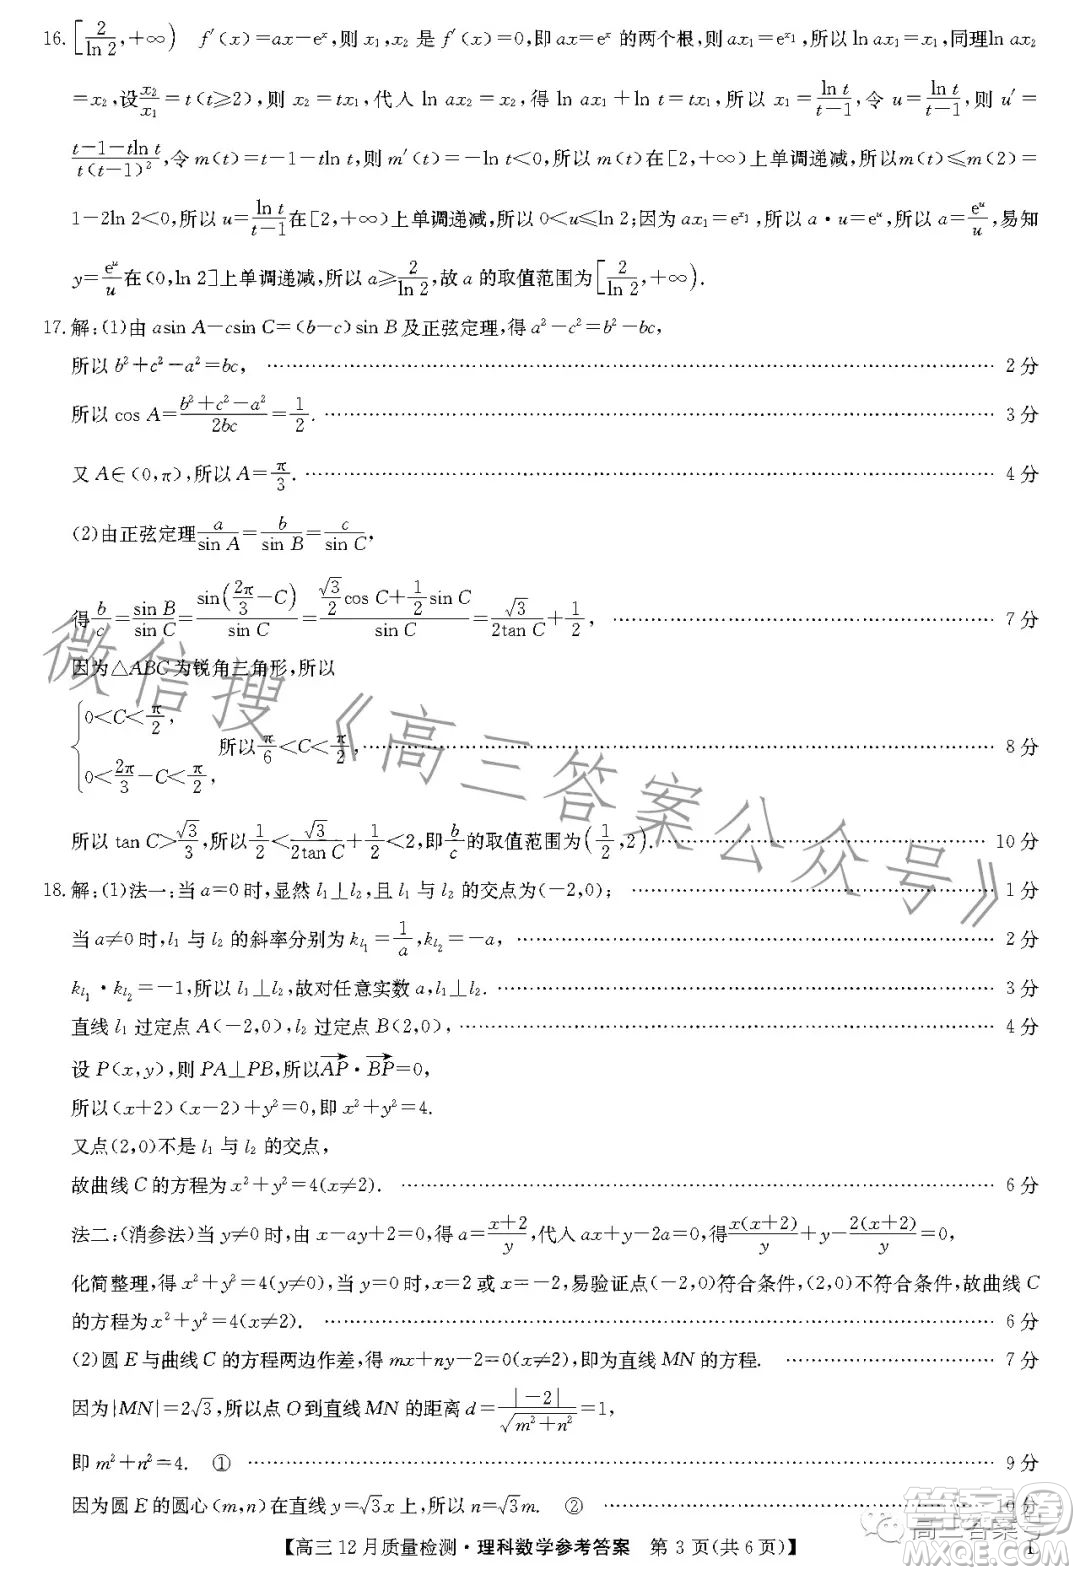 16. [2/ln 2, +∞) f′(x)=ax−eˣ,则 x₁,x₂ 是 f′(x)=0,即 ax=eˣ 的两个根,则 ax₁=e^{x₁},所以 ln ax₁=x₁,同理ln ax₂
=x₂,设x₂/x₁=t(t≥2),则 x₂=tx₁,代入 ln ax₂=x₂,得 ln ax₁+ln t=tx₁,所以 x₁=ln t/(t−1),令 u=ln t/(t−1),则 u′=
(t−1−tln t)/(t(t−1)²),令 m(t)=t−1−tln t,则 m′(t)=−ln t<0,所以 m(t)在[2,+∞)上单调递减,所以m(t)≤m(2)=
1−2ln 2<0,所以 u=ln t/(t−1)在[2,+∞)上单调递减,所以 0<u≤ln 2;因为 ax₁=e^{x₁},所以 a·u=eᵘ,所以 a=eᵘ/u,易知
y=eᵘ/u在(0,ln 2]上单调递减,所以 a≥2/ln 2,故 a 的取值范围为[2/ln 2,+∞).
17. 解:(1)由 asin A−csin C=(b−c)sin B及正弦定理,得 a²−c²=b²−bc,
所以 b²+c²−a²=bc, …… 2 分
所以 cos A=(b²+c²−a²)/2bc=1/2. …… 3 分
又 A∈(0,π),所以 A=π/3. …… 4 分
(2)由正弦定理a/sin A=b/sin B=c/sin C,
得b/c=sin B/sin C=sin(2π/3−C)/sin C=(√3/2 cos C+1/2 sin C)/sin C=√3/(2tan C)+1/2, …… 7 分
因为△ABC为锐角三角形,所以
{0<C<π/2, 0<2π/3−C<π/2, 所以π/6<C<π/2, …… 8 分
所以 tan C>√3/3,所以1/2<√3/(2tan C)+1/2<2,即b/c的取值范围为(1/2,2). …… 10 分
18. 解:(1)法一:当 a=0 时,显然 l₁⊥l₂,且 l₁ 与 l₂ 的交点为(−2,0); …… 1 分
当 a≠0 时,l₁ 与 l₂ 的斜率分别为 k_{l₁}=1/a,k_{l₂}=−a, …… 2 分
k_{l₁}·k_{l₂}=−1,所以 l₁⊥l₂,故对任意实数 a,l₁⊥l₂. …… 3 分
直线 l₁ 过定点 A(−2,0),l₂ 过定点 B(2,0), …… 4 分
设 P(x,y),则 PA⊥PB,所以AP→·BP→=0,
所以(x+2)(x−2)+y²=0,即 x²+y²=4.
又点(2,0)不是 l₁ 与 l₂ 的交点,
故曲线 C 的方程为 x²+y²=4(x≠2). …… 6 分
法二:(消参法)当 y≠0 时,由 x−ay+2=0,得 a=(x+2)/y,代入 ax+y−2a=0,得x(x+2)/y+y−2(x+2)/y=0,
化简整理,得 x²+y²=4(y≠0),当 y=0 时,x=2 或 x=−2,易验证点(−2,0)符合条件,(2,0)不符合条件,故曲线 C
的方程为 x²+y²=4(x≠2). …… 6 分
(2)圆 E与曲线 C 的方程两边作差,得 mx+ny−2=0(x≠2),即为直线 MN 的方程. …… 7 分
因为|MN|=2√3,所以点 O到直线 MN 的距离 d=|−2|/√(m²+n²)=1,
即 m²+n²=4. ① …… 9 分
因为圆 E 的圆心(m,n)在直线 y=√3x 上,所以 n=√3m. ② …… 10 分
【高三 12 月质量检测·理科数学参考答案 第 3 页(共 6 页)】
微信搜《高三答案公众号》
答案圈
高三答案号